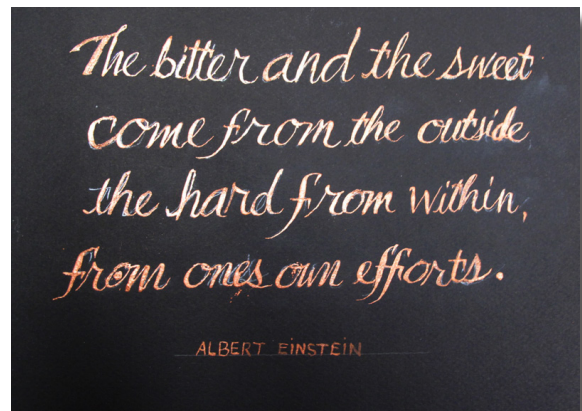 The bitter and the sweet
come from the outside
the hard from within,
from ones own efforts.
ALBERT EINSTEIN